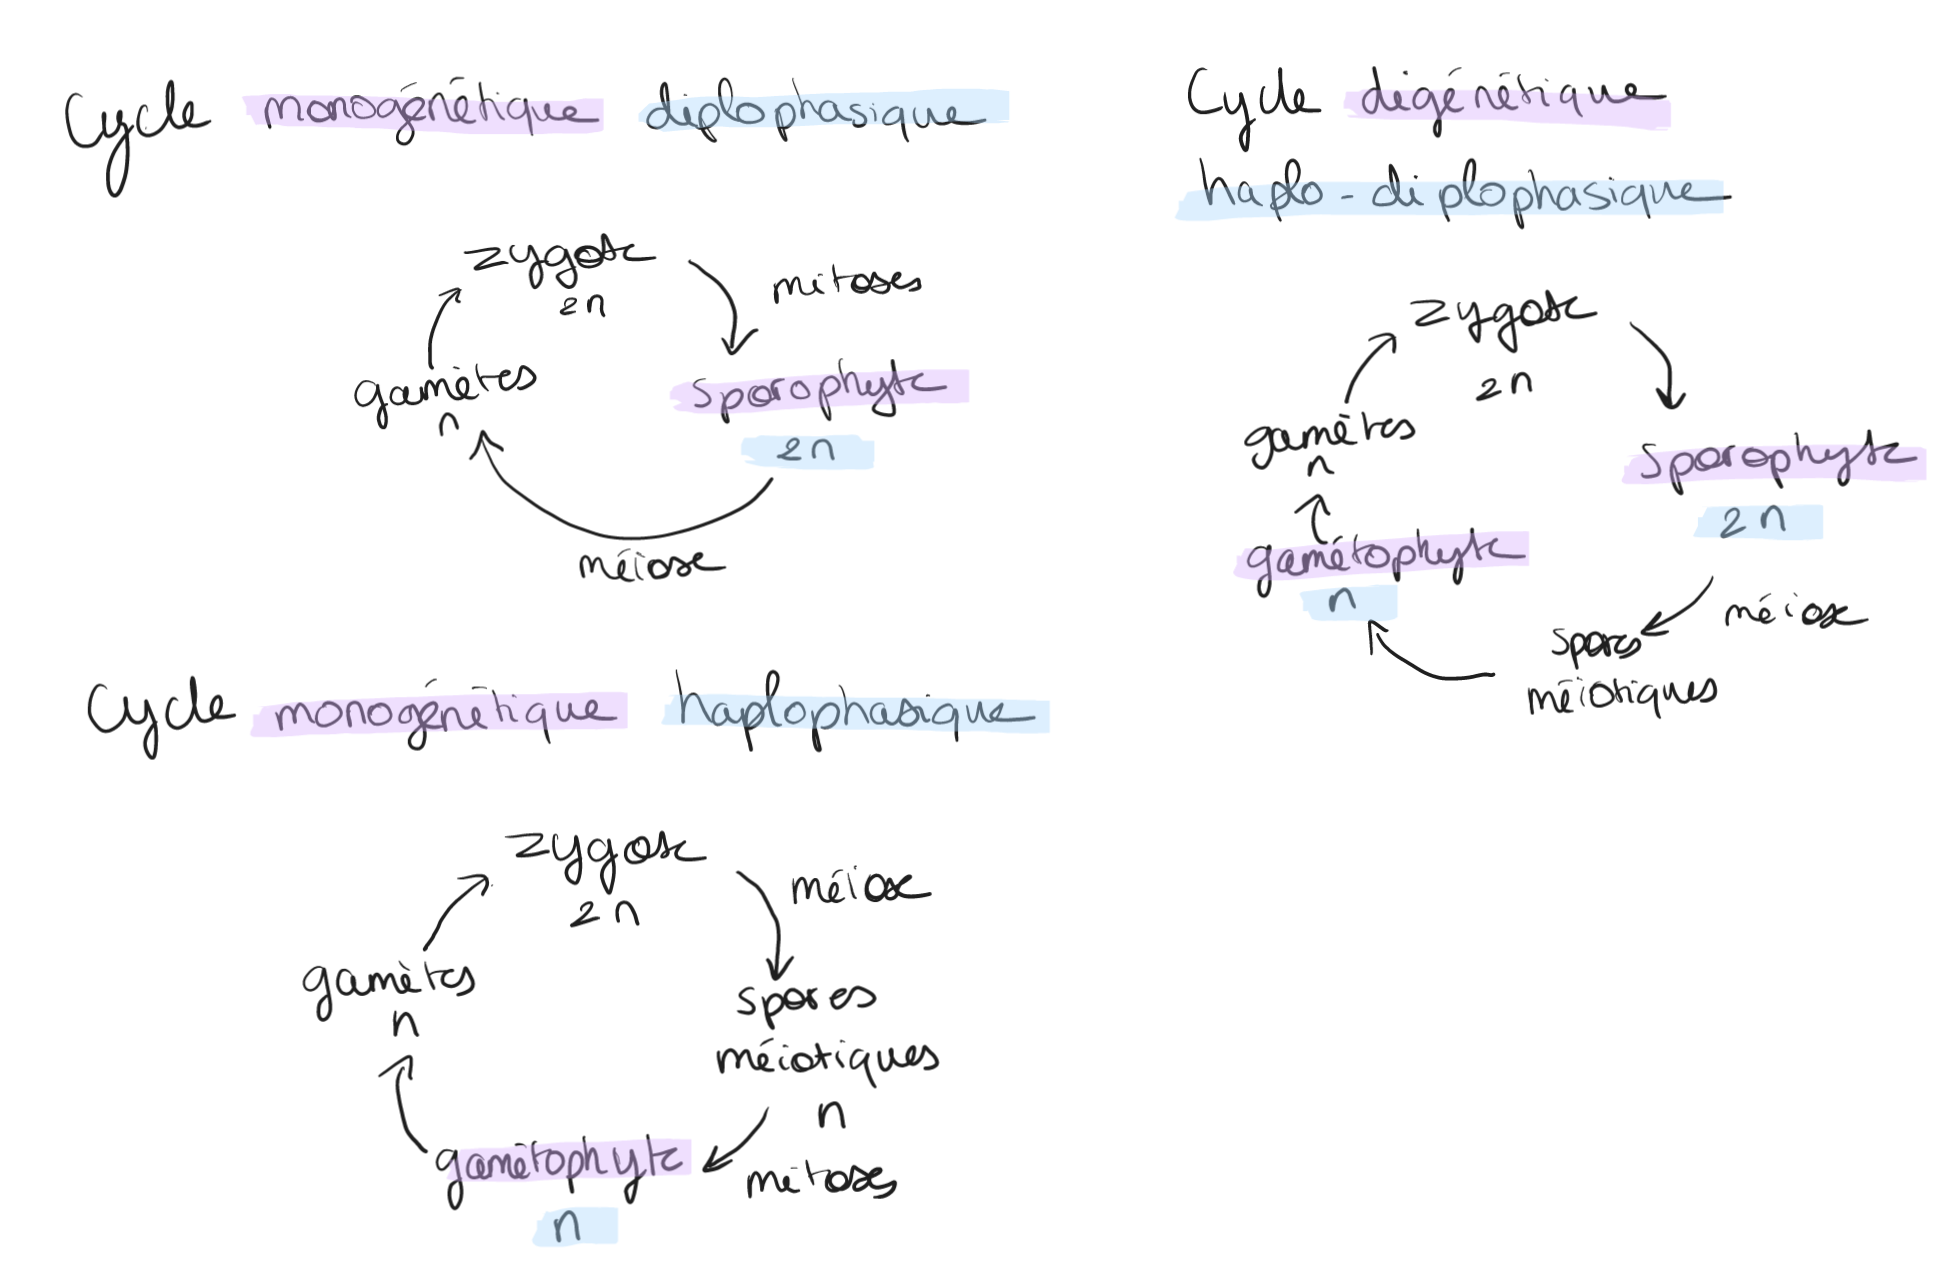 Cycle monogénétique diplophasique
zygote
2n
mitoses
sporophyte
2n
méiose
gamètes
n
Cycle monogénétique haplophasique
zygote
2n
méiose
spores
méiotiques
n
mitoses
gamétophyte
n
gamètes
n
Cycle digénétique
haplo-diplophasique
zygote
2n
sporophyte
2n
méiose
spores
méiotiques
gamétophyte
n
gamètes
n